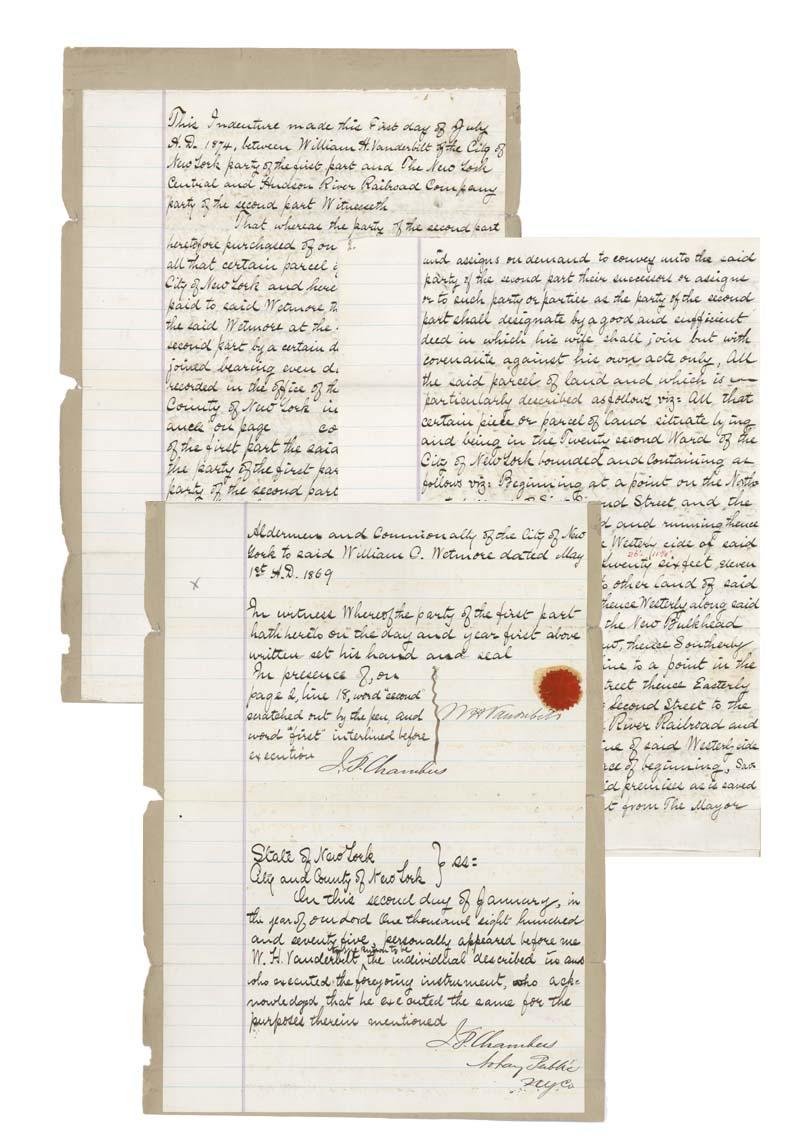 This Indenture made this First day of July
A.D. 1874, between William H. Vanderbilt of the City of
New York party of the first part and The New York
Central and Hudson River Railroad Company
party of the second part Witnesseth
That whereas the party of the second part
heretofore purchased of on
all that certain parcel
City of New York and here
paid to said Wetmore th
the said Wetmore at the
second part by a certain d
joined bearing even da
recorded in the office of th
County of New York in
ances" on page co
of the first part the said
the party of the first par
party of the second part
2.
and assigns on demand to convey unto the said
party of the second part their successors or assigns
or to such party or parties as the party of the second
part shall designate by a good and sufficient
deed in which his wife shall join but with
covenants against his own acts only, All
the said parcel of land and which is
particularly described as follows viz= All that
certain piece or parcel of land situate lying
and being in the Twenty second Ward of the
City of New York bounded and containing as
follows viz: Beginning at a point on the North
Street and the
d and running thence
Westerly side of said
26ft 11in
twenty six feet, eleven
other land of said
thence Westerly along said
the New Bulkhead
thence Southerly
ine to a point in the
treet thence Easterly
Second Street to the
River Railroad and
ine of said Westerly side
ace of beginning, Sav
id premises as is saved
t from The Mayor
Aldermen and Commonally of the City of New
York to said William O. Wetmore dated May
1st A.D. 1869
x
In witness Whereof the party of the first part
hath hereto on the day and year first above
written set his hand and seal
In presence of, on
page 2, line 18, word "second"
scratched out by the pen, and
word "first" interlined before
execution
W H Vanderbilt
J. P. Chambers
State of New York
City and County of New York } ss=
On this second day of January, in
the year of our Lord One thousand eight hundred
and seventy five, personally appeared before me
to me known to be
W. H. Vanderbilt ^ the individual described in and
who executed the foregoing instrument, who ack=
nowledged that he executed the same for the
purposes therein mentioned
J. P. Chambers
Notary Public
N.Y. Co